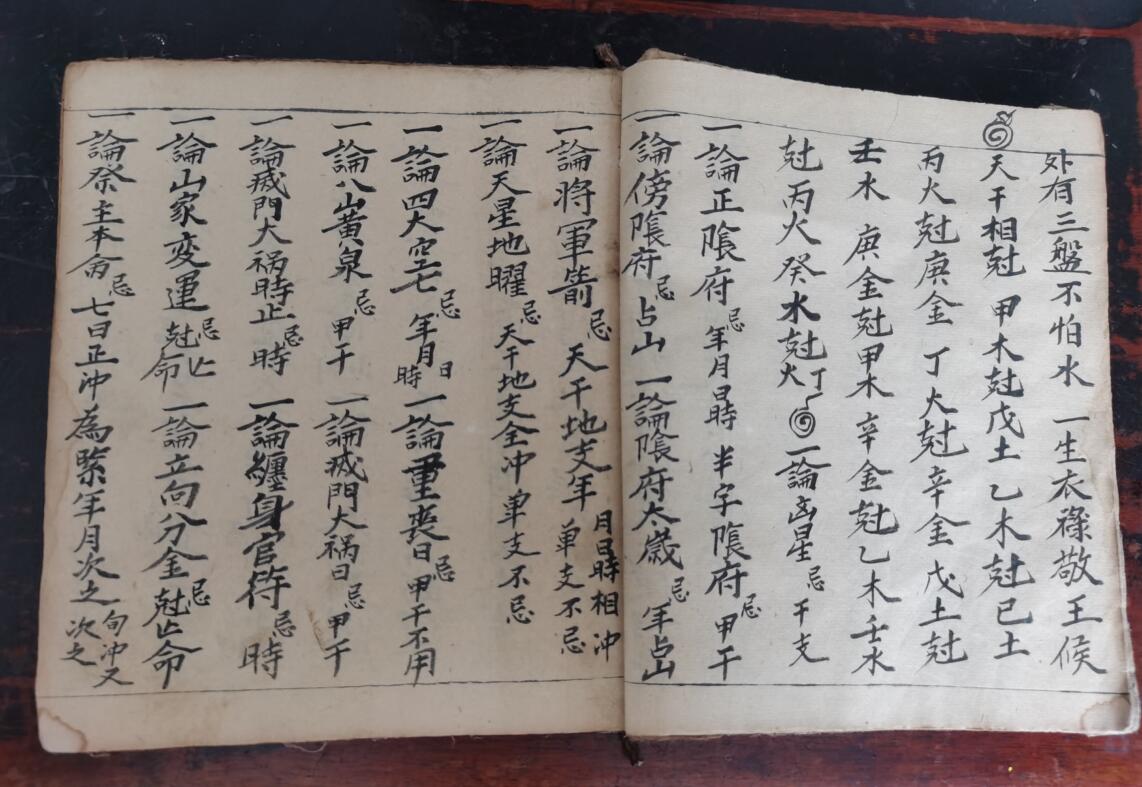 外有三盤不怕水 一生衣祿敬王候
天干相尅 甲木尅戊土 乙木尅已土
丙火尅庚金 丁火尅辛金 戊土尅
壬水 庚金尅甲木 辛金尅乙木 壬水
尅丙火 癸水尅丁火 一論凶星忌干支
一論正隂府忌年月日時 半字隂府忌甲干
一論傍隂府忌占山 一論隂府太歲忌年占山
一論將軍箭忌天干地支年月日時相冲 单支不忌
一論天星地曜忌天干地支全冲 单支不忌
一論四大空亡忌年月日時 一論重喪日忌甲干不用
一論八山黃泉忌甲干 一論滅門大禍日忌甲干
一論滅門大祸時止忌時 一論纏身官符忌時
一論山家変運忌尅化命 一論立向分金忌尅化命
一論祭主本命忌七日正沖為緊年月次之旬沖又次之